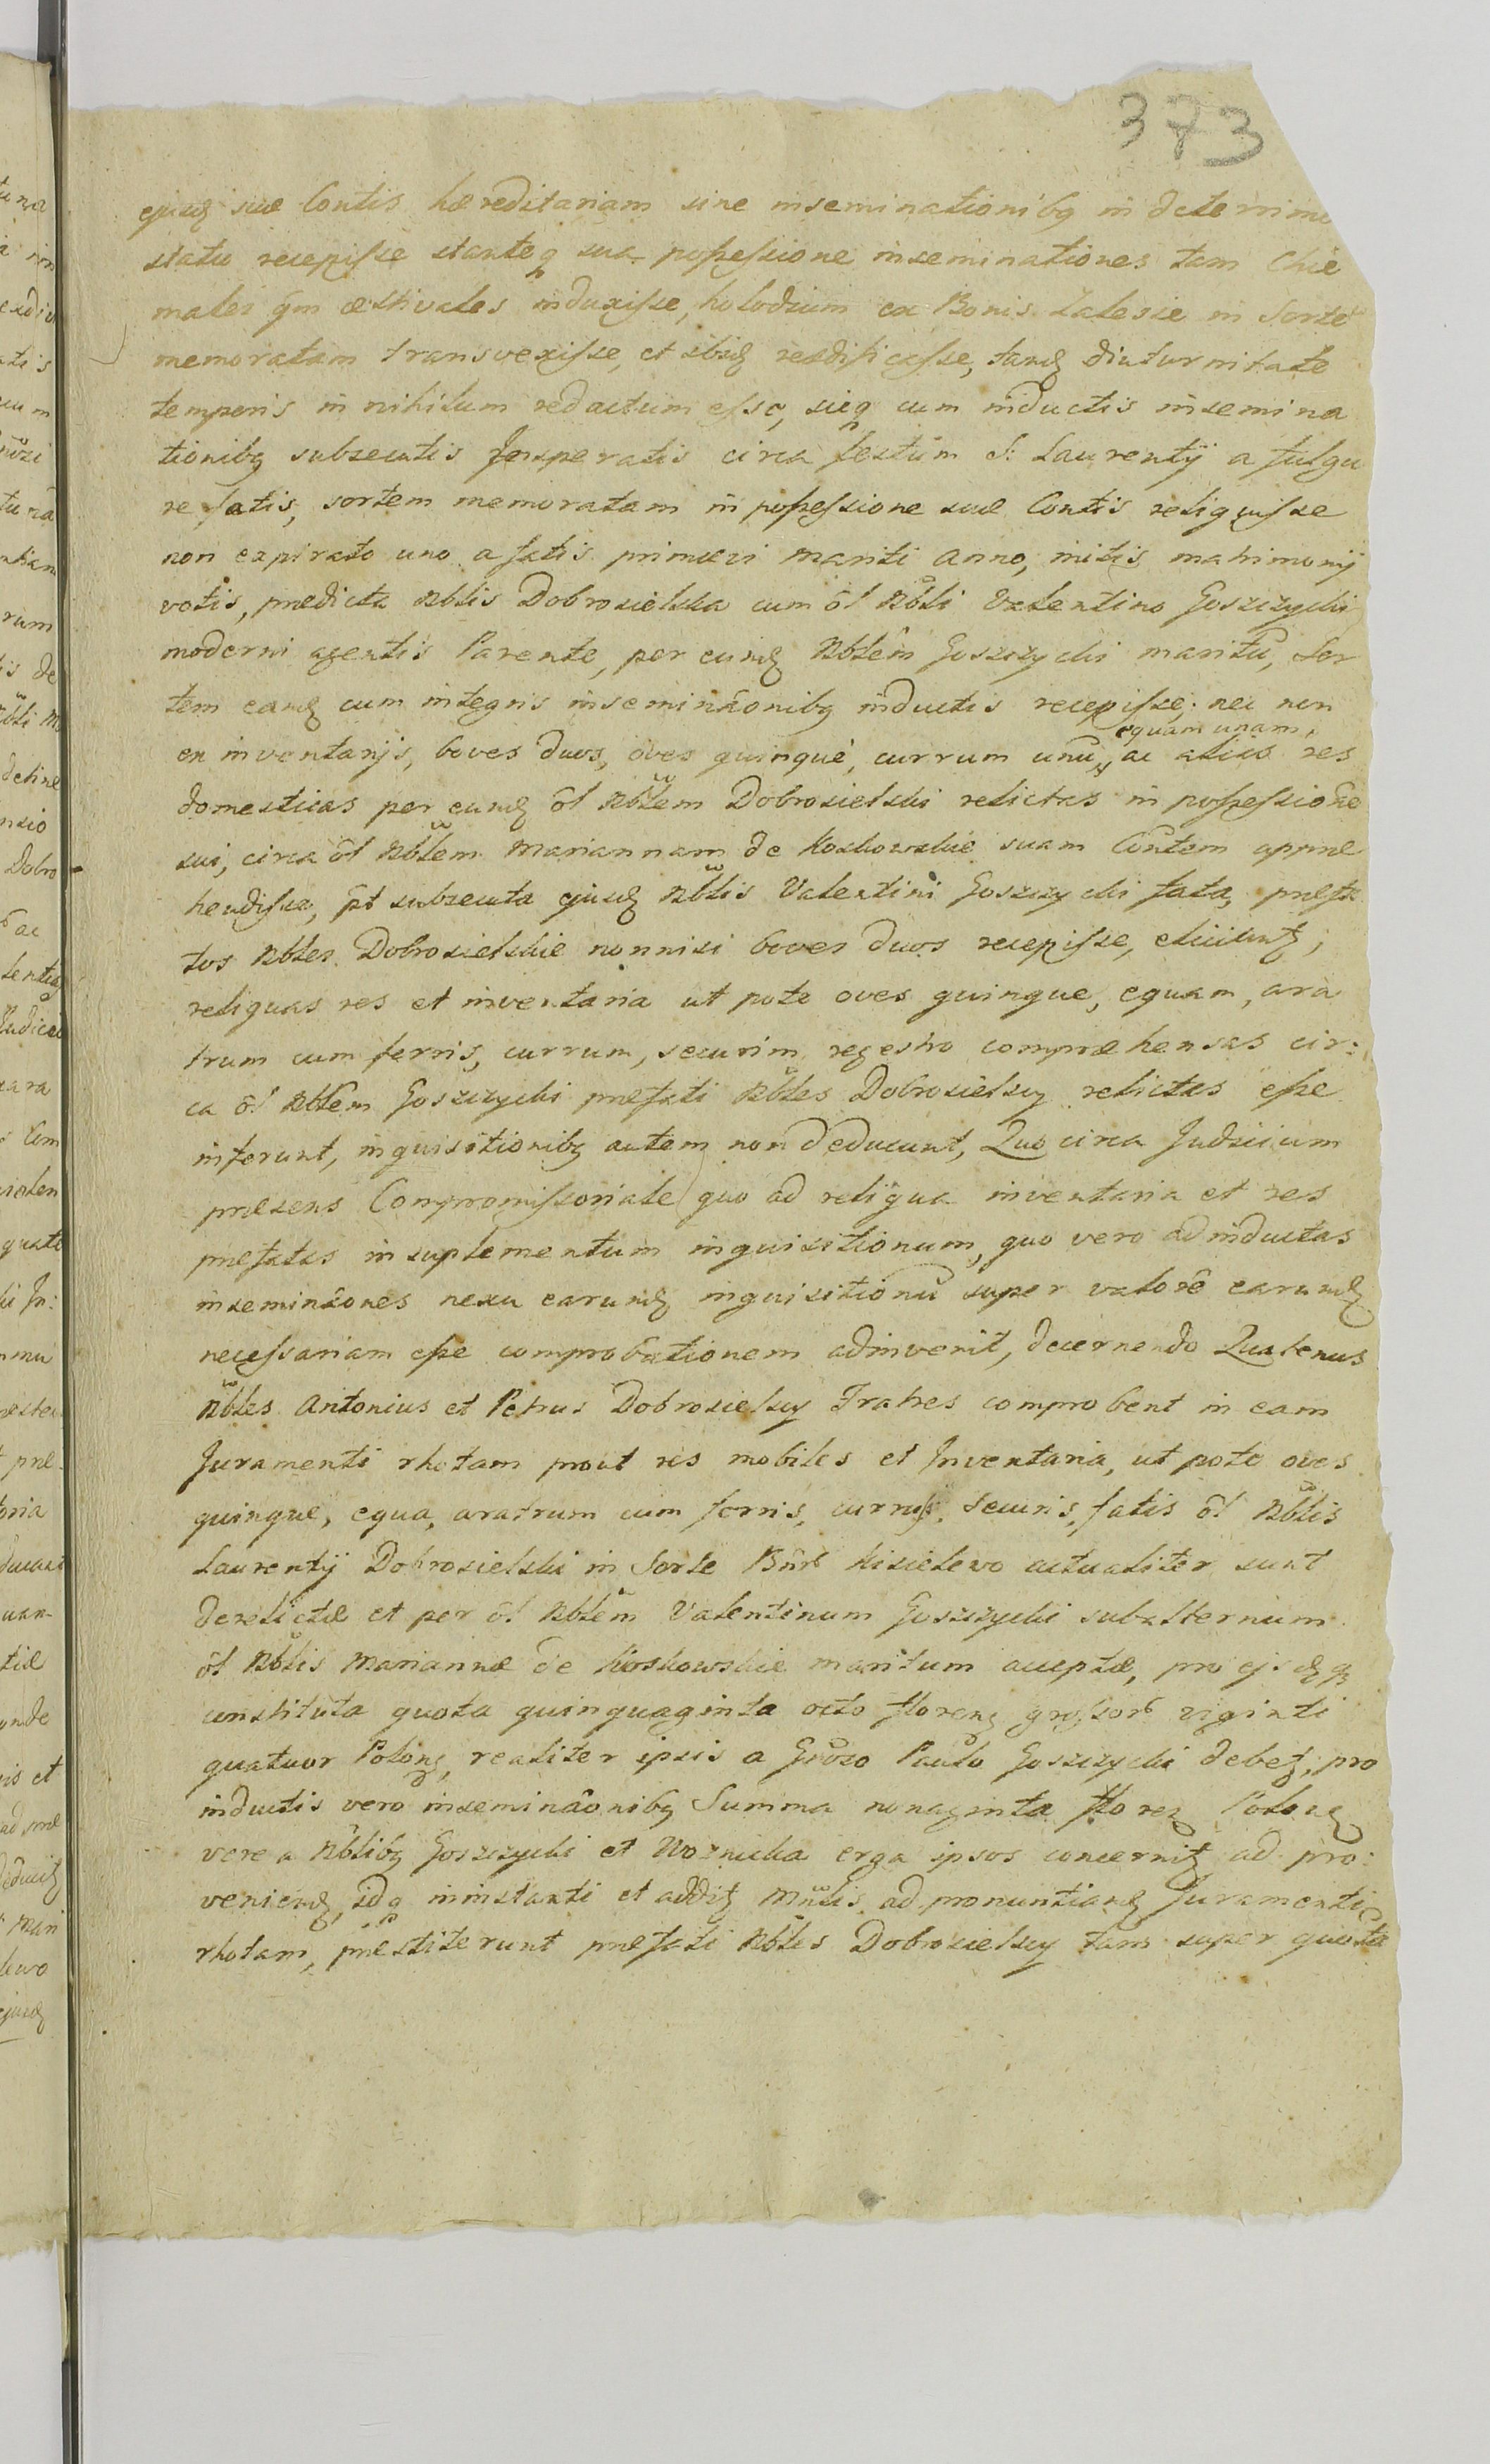 373
ejusd suæ Contis hæreditariam sine inseminationibq in deterrimo
statu recepisse stanteq sua possessione inseminationes tam Chie
males qm æstivales induxisse, holodzium ex Bonis Zalesie in Sorte
memoratam transvexisse, et ibid reædificasse, tand diuturnitate
temporis in nihilum redactum esse, sicq cum inductis insemina
tionibq subsecutis Insperatis circa festum S: Laurentÿ a fulgu
re fatis, sortem memoratam in possessione suæ Contis reliquisse
non expirato uno a fatis primævi mariti anno, initis matrimonÿ
votis, prædicta Nblis Dobrosielska cum ol Nbli Valentino Goszczycki
moderni agentis Parente, per eund Nblem Goszczycki maritu, Sor
tem eand cum integris inseminaonibq inductis recepisse; nec non
equam unam,
ex inventarÿs, boves duos, oves quinque, currum unu, ac alias res
domesticas per eund ol Nblem Dobrosielski relictas in possessione
sui, circa ol Nblem Mariannam de Koskowskie suam Contem appræ
hendisse, pt subsecuta ejusd Nblis Valentini Goszczycki fata, præfa
tos Nbles Dobrosielskie nonnisi boves duos recepisse, eliciunt;
reliquas res et inventaria ut pote oves quinque, equam, ara
trum cum ferris, currum, securim regestro compræhensas cir:
ca ol Nblem Goszczycki præfati Nbles Dobrosielscy relictas esse
inferunt, inquisitionibq autem non deducunt, Quo circa Judicium
præsens Compromissoriale quo ad reliqua inventaria et res
præfatas in suplementum inquisitionum, quo vero ad inductas
inseminaones nexu earund inquisitionu super valore earund
necessariam esse comprobationem adinvenit, decernendo Quatenus
Nbles Antonius et Petrus Dobrosielscy Fratres comprobent in eam
Juramenti rhotam prout res mobiles et Inventaria, ut pote oves
quinque, equa, aratrum cum ferris, currus, securis, fatis ol Nblis
Laurentÿ Dobrosielski in Sorte Bnr Kisielewo actualiter sunt
derelictæ et per ol Nblem Valentinum Goszczycki subalternum
ol Nblis Mariannæ de Koskowskie maritum acceptæ, pro
constituta quota quinquaginta octo floren grossor viginti
quatuor Polon, realiter ipsis a Groso Paulo Goszczycki debet, pro
inductis vero inseminaonibq Summa nonaginta floren Polon
vere a Nblibq Goszczycki et Woznicka erga ipsos concernit ad pro:
veniend, idq ininstanti et addit Mnlis ad pronuntiand Juramenti
rhotam, præstiterunt præfati Nbles Dobrosielscy tam super quota